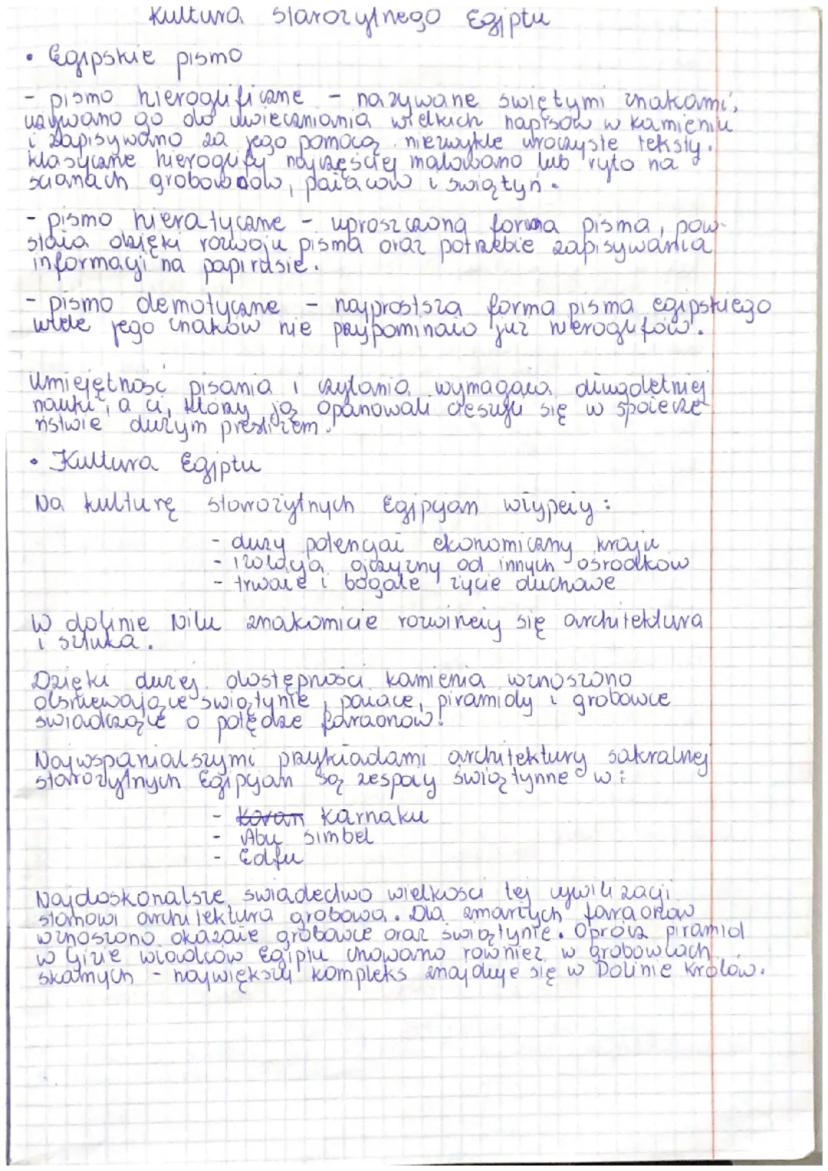 Kultura starożytnego Egiptu
• Egipskie pismo
- pismo hieroglificzne - nazywane świętymi znakami,
używano go do uwieczniania wielkich napisów w kamieniu
i zapisywano za jego pomocą niezwykle uroczyste teksty.
Klasyczne hieroglify najczęściej malowano lub ryto na
ścianach grobowców, pałaców i świątyń.
- pismo hieratyczne - uproszczona forma pisma, pow-
stała dzięki rozwoju pisma oraz potrzebie zapisywania
informacji na papirusie.
- pismo demotyczne - najprostsza forma pisma egipskiego
wiele jego znaków nie przypominało już hieroglifów.
Umiejętność pisania i czytania wymagała długoletniej
nauki, a ci, którzy ją opanowali cieszyli się w społecze-
ństwie dużym prestiżem.
• Kultura Egiptu
Na kulturę starożytnych Egipcjan włypęły:
- duży potencjał ekonomiczny kraju
- izolacja ojczyzny od innych ośrodków
- trwałe i bogate życie duchowe
W dolinie Nilu znakomicie rozwinęły się architektura
i sztuka.
Dzięki dużej dostępności kamienia wznoszono
olśniewające świątynie, pałace, piramidy i grobowce
świadczące o potędze faraonów!
Najwspanialszymi przykładami architektury sakralnej
starożytnych Egipcjan są zespoły świątynne w:
- Karnaku
- Abu Simbel
- Edfu
Najdoskonalsze świadectwo wielkości tej cywilizacji
stanowi architektura grobowa. Dla zmarłych faraonów
wznoszono okazałe grobowce oraz świątynie. Oprócz piramid
w Gizie władców Egiptu chowano również w grobowcach
skalnych - największy kompleks znajduje się w Dolinie Królów.